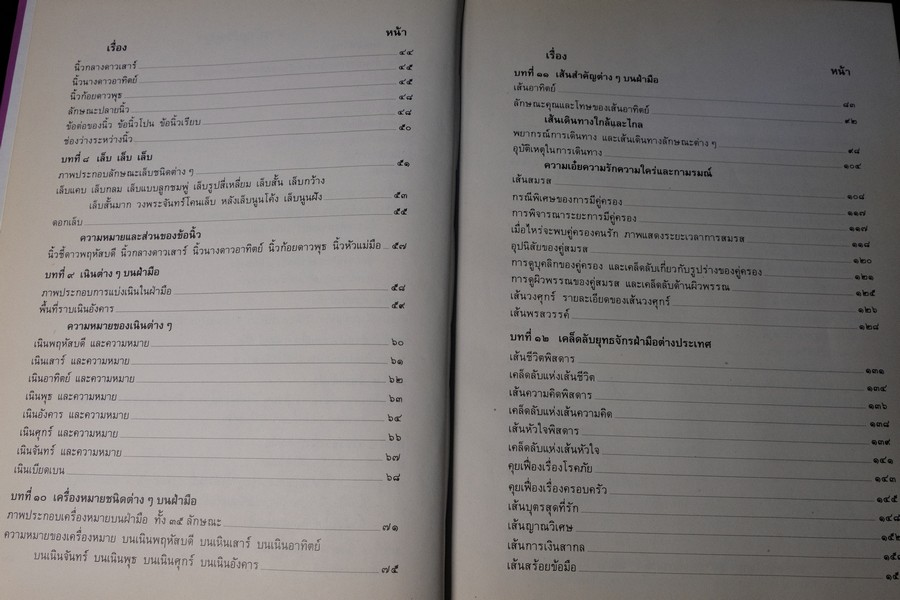 หน้า
เรื่อง
๔๔
นิ้วกลางดาวเสาร์ ๔๕
นิ้วนางดาวอาทิตย์ ๔๕
นิ้วก้อยดาวพุธ ๔๘
ลักษณะปลายนิ้ว ๔๘
ข้อต่อของนิ้ว ข้อนิ้วโปน ข้อนิ้วเรียบ ๕๐
ช่องว่างระหว่างนิ้ว
บทที่ ๘ เล็บ เล็บ เล็บ
ภาพประกอบลักษณะเล็บชนิดต่าง ๆ ๕๑
เล็บแคบ เล็บกลม เล็บแบบลูกชมพู่ เล็บรูปสี่เหลี่ยม เล็บสั้น เล็บกว้าง
เล็บสั้นมาก วงพระจันทร์โคนเล็บ หลังเล็บนูนโค้ง เล็บนูนฝัง ๕๓
ดอกเล็บ ๕๕
ความหมายและส่วนของข้อนิ้ว
นิ้วชี้ดาวพฤหัสบดี นิ้วกลางดาวเสาร์ นิ้วนางดาวอาทิตย์ นิ้วก้อยดาวพุธ นิ้วหัวแม่มือ ๕๗
บทที่ ๙ เนินต่าง ๆ บนฝ่ามือ
ภาพประกอบการแบ่งเนินในฝ่ามือ ๕๘
พื้นที่ราบเนินอังคาร ๕๙
ความหมายของเนินต่าง ๆ
เนินพฤหัสบดี และความหมาย ๖๐
เนินเสาร์ และความหมาย ๖๑
เนินอาทิตย์ และความหมาย ๖๒
เนินพุธ และความหมาย ๖๓
เนินอังคาร และความหมาย ๖๔
เนินศุกร์ และความหมาย ๖๖
เนินจันทร์ และความหมาย ๖๗
เนินเบียดเบน ๖๘
บทที่ ๑๐ เครื่องหมายชนิดต่าง ๆ บนฝ่ามือ
ภาพประกอบเครื่องหมายบนฝ่ามือ ทั้ง ๓๕ ลักษณะ ๗๑
ความหมายของเครื่องหมาย บนเนินพฤหัสบดี บนเหินเสาร์ บนเนินอาทิตย์
บนเนินจันทร์ บนเนินพุธ บนเนินศุกร์ บนเนินอังคาร ๗๕
เรื่อง
หน้า
บทที่ ๑๑ เส้นสำคัญต่าง ๆ บนฝ่ามือ
เส้นอาทิตย์ ๘๓
ลักษณะคุณและโทษของเส้นอาทิตย์ ๙๒
เส้นเดินทางใกล้และไกล
พยากรณ์การเดินทาง และเส้นเดินทางลักษณะต่าง ๆ ๙๘
อุบัติเหตุในการเดินทาง ๑๐๔
ความเอ๋ยความรักความใคร่และกามรมณ์
เส้นสมรส ๑๐๘
กรณีพิเศษของการมีคู่ครอง ๑๑๗
การพิจารณาระยะการมีคู่ครอง ๑๑๗
เมื่อไหร่จะพบคู่ครองคนรัก ภาพแสดงระยะเวลาการสมรส ๑๑๘
อุปนิสัยของคู่สมรส ๑๒๐
การดูบุคลิกของคู่ครอง และเคล็ดลับเกี่ยวกับรูปร่างของคู่ครอง ๑๒๑
การดูผิวพรรณของคู่สมรส และเคล็ดลับด้านผิวพรรณ ๑๒๕
เส้นวงศุกร์ รายละเอียดของเส้นวงศุกร์ ๑๒๖
เส้นพรสวรรค์ ๑๒๘
บทที่ ๑๒ เคล็ดลับยุทธจักรฝ่ามือต่างประเทศ
เส้นชีวิตพิสดาร ๑๓๑
เคล็ดลับแห่งเส้นชีวิต ๑๓๔
เส้นความคิดพิสดาร ๑๓๖
เคล็ดลับแห่งเส้นความคิด ๑๓๘
เส้นหัวใจพิสดาร ๑๓๙
เคล็ดลับแห่งเส้นหัวใจ ๑๔๑
คุยเฟื่องเรื่องโรคภัย ๑๔๓
คุยเฟื่องเรื่องครอบครัว ๑๔๕
เส้นบุตรสุดที่รัก ๑๔๘
เส้นญาณวิเศษ ๑๕๒
เส้นการเงินสากล
เส้นสร้อยข้อมือ